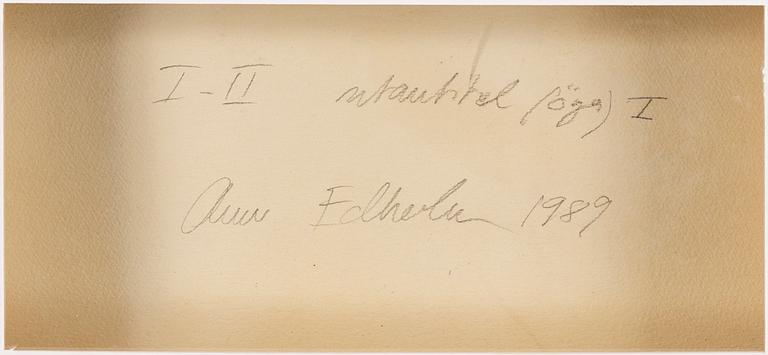 I-II utan titel (öga) I
Ann Edholm 1989